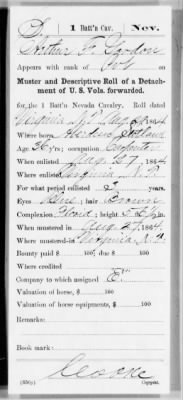 1 Batt'n Cav. Nev.
Arthur
Appears with rank of
Muster and Descriptive Roll of a Detach-
ment of U. S. Vols. forwarded.
for the 1 Batt'n Nevada Cavalry. Roll dated
Virginia N.T. Aug 27, 1864
Where born Scotland
Age y'rs; occupation Carpenter
When enlisted Aug. 27, 1864
Where enlisted Virginia N.T.
For what period enlisted 3 years.
Eyes Blue; hair Brown
Complexion ; height 5 ft. in.
When mustered in Aug 27, 1864
Where mustered in Virginia N.T.
Bounty paid $ 100; due $ 100
Where credited
Company to which assigned E.
Valuation of horse, $ 100
Valuation of horse equipments, $ 100
Remarks:
Book mark:
Copyist.